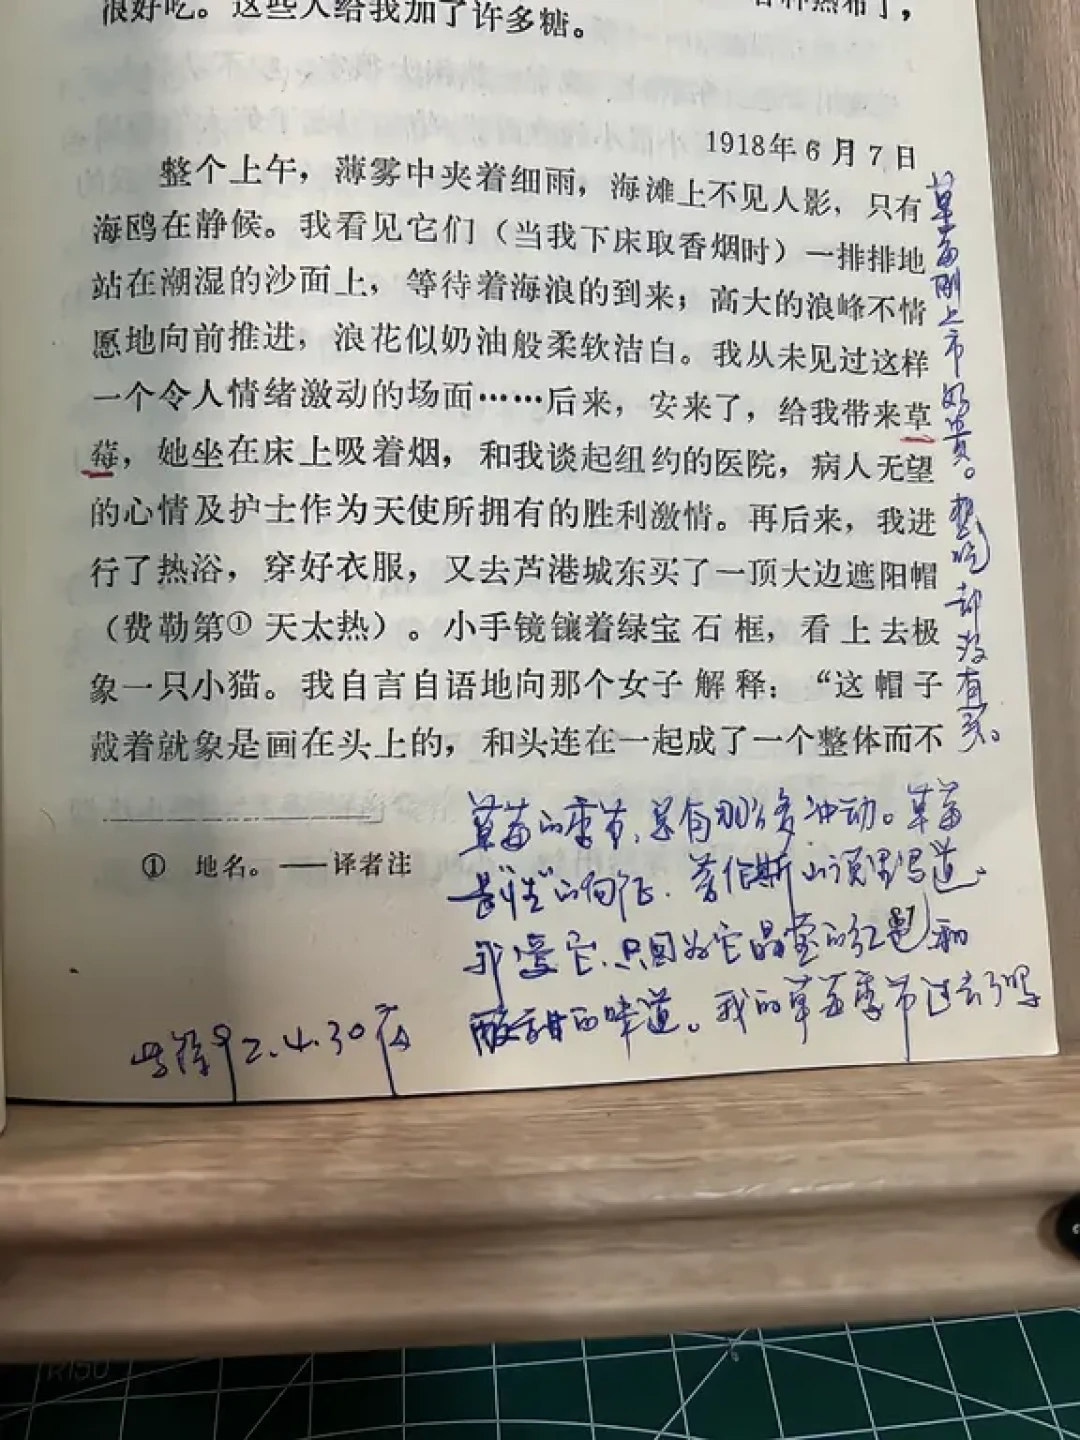 很好吃。这些人给我加了许多糖。
1918年6月7日
整个上午，薄雾中夹着细雨，海滩上不见人影，只有
海鸥在静候。我看见它们（当我下床取香烟时）一排排地
站在潮湿的沙面上，等待着海浪的到来；高大的浪峰不情
愿地向前推进，浪花似奶油般柔软洁白。我从未见过这样
一个令人情绪激动的场面……后来，安来了，给我带来草
莓，她坐在床上吸着烟，和我谈起纽约的医院，病人无望
的心情及护士作为天使所拥有的胜利激情。再后来，我进
行了热浴，穿好衣服，又去芦港城东买了一顶大边遮阳帽
（费勒第①天太热）。小手镜镶着绿宝石框，看上去极
象一只小猫。我自言自语地向那个女子解释：“这帽子
戴着就象是画在头上的，和头连在一起成了一个整体而不
① 地名。——译者注
草莓刚上市好贵。想吃却没有买。
草莓的季节，总有那么多冲动。草莓
是“性”的象征.劳伦斯小说里写道
我爱它.只因为它晶莹的红色和
酸甜的味道。我的草莓季节过去了吗
92.4.30夜
TR150